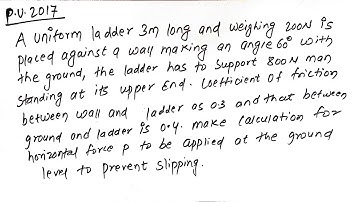 P.U. 2017
A uniform ladder 3m long and weighing 200N is
placed against a wall making an angle 60° with
the ground, the ladder has to support 800N man
standing at its upper End. Coefficient of friction
between wall and ladder os 0.3 and that between
ground and ladder is 0.4. make calculation for
horizontal force P to be applied at the ground
level to prevent slipping.